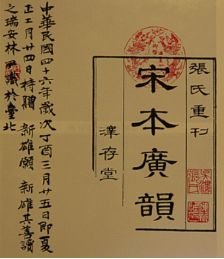 張氏重刊
宋本廣韻
澤存堂
中華民國四十六年歲次丁酉三月廿五日即夏
正二月廿四日持贈 新雄願 新雄其善讀
之瑞安林尹識於臺北